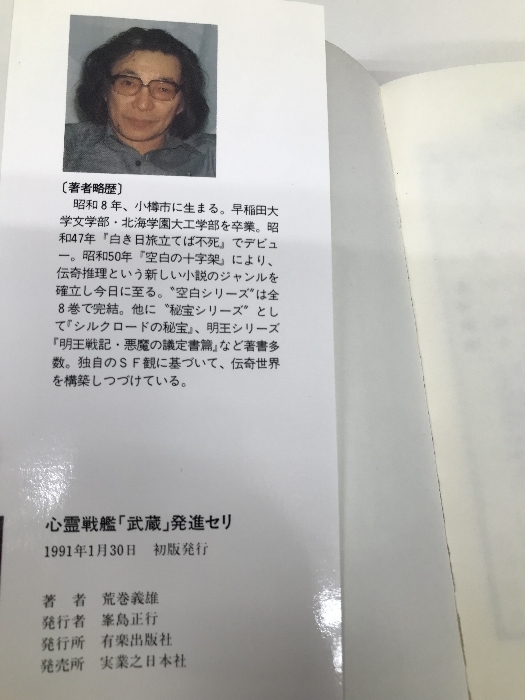 〔著者略歴〕
昭和8年、小樽市に生まる。早稲田大
学文学部・北海学園大工学部を卒業。昭
和47年『白き日旅立てば不死』でデビュ
ー。昭和50年『空白の十字架』により、
伝奇推理という新しい小説のジャンルを
確立し今日に至る。〝空白シリーズ〟は全
8巻で完結。他に〝秘宝シリーズ〟とし
て『シルクロードの秘宝』、明王シリーズ
『明王戦記・悪魔の議定書篇』など著書多
数。独自のSF観に基づいて、伝奇世界
を構築しつづけている。
心霊戦艦「武蔵」発進セリ
1991年1月30日 初版発行
著者 荒巻義雄
発行者 峯島正行
発行所 有楽出版社
発売所 実業之日本社